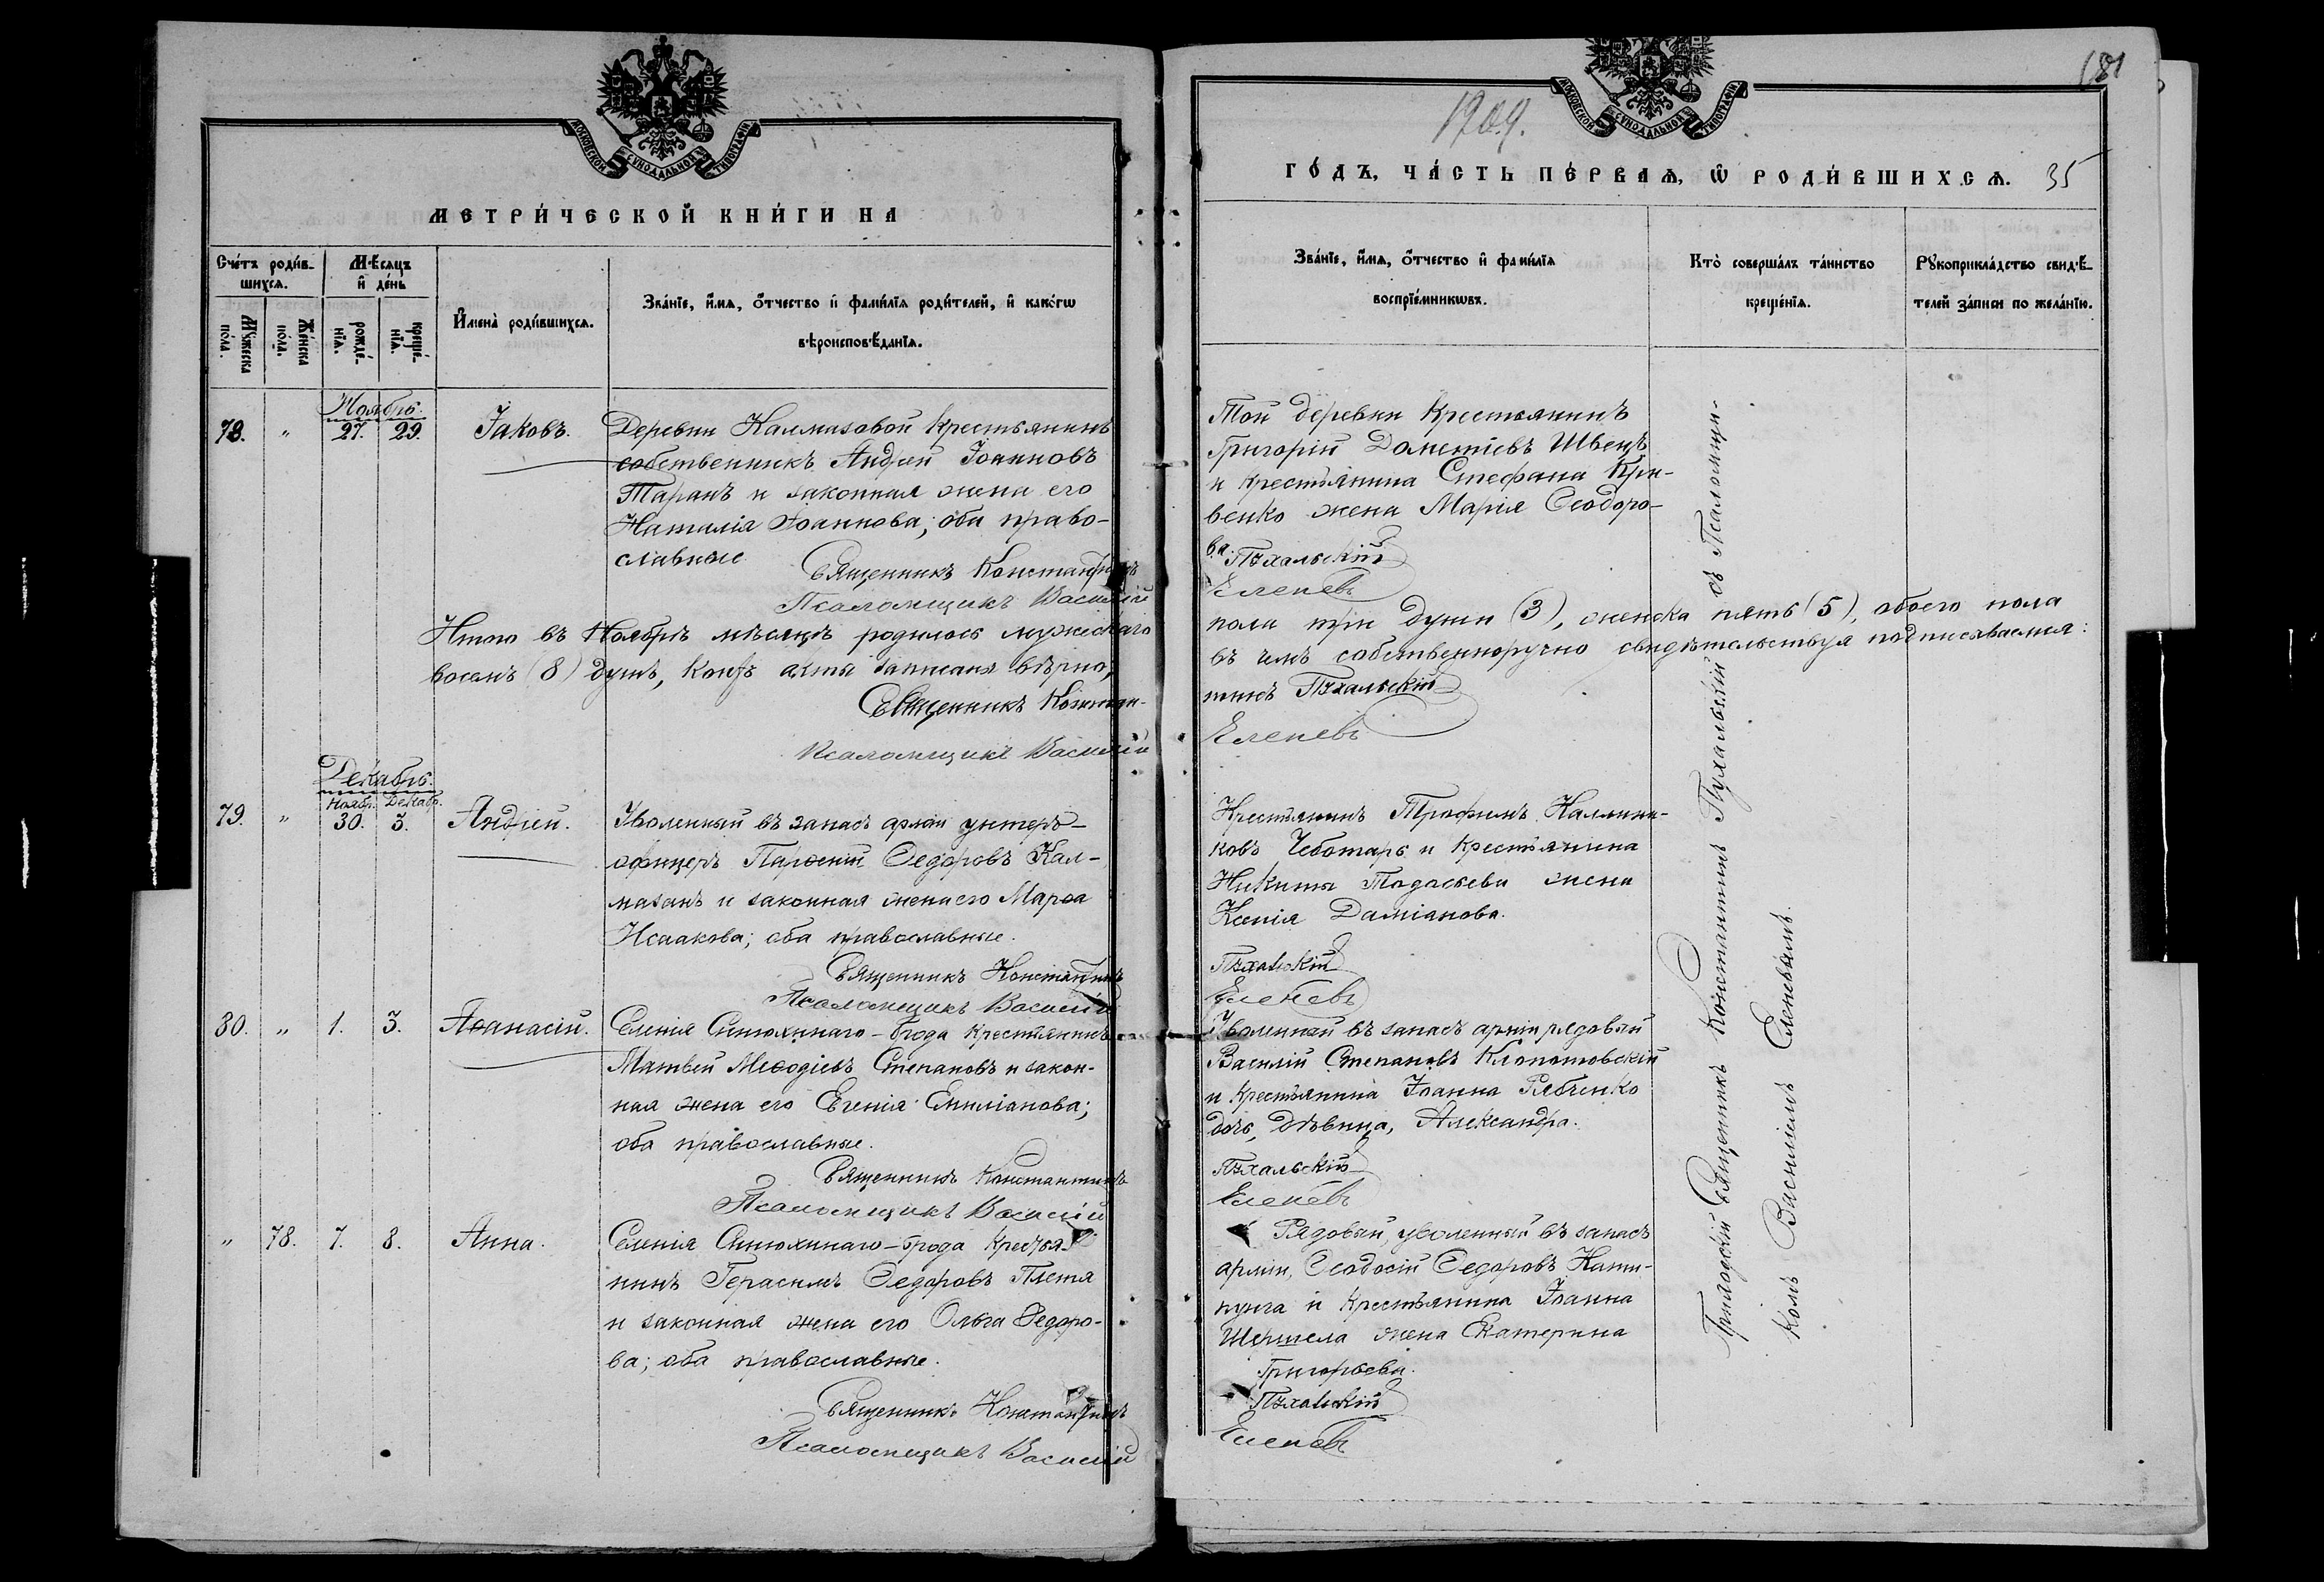 МОСКОВСКОЙ СѴНОДАЛЬНОЙ ТИПОГРАФІИ
МЕТРИ́ЧЕСКОЙ КНИ́ГИ НА
Сче́тъ роди́в-
шихсѧ.
Мѣ́сяцъ
и҆ де́нь
Мꙋ́жеска
по́ла.
Же́нска
по́ла.
рожде́-
нїѧ.
креще́-
нїѧ.
И҆мена̀ роди́вшихсѧ.
Зва́нїе, и҆́мѧ, ѻ҆́тчество и҆ фами́лїѧ роди́телей, и҆ како́гѡ
вѣроисповѣ́данїѧ.
Ноябрь.
78. " 27. 29. Іаковъ.
Деревни Калмазовой крестьянинъ
собственникъ Андрей Іоанновъ
Таранъ и законная жена его
Наталія Іоаннова; оба право-
славные
Священникъ Константинъ
Псаломщикъ Василій
Итого въ Ноябрѣ мѣсяцѣ родилось мужескаго
восемь (8) душъ, коихъ акты записаны вѣрно,
Священникъ Констан-
Псаломщикъ Василій
Декабрь.
Ноябр. Декабр.
79. " 30. 3. Андрей.
Уволенный въ запасъ арміи унтеръ-
офицеръ Парѳеній Ѳедоровъ Кал-
мазанъ и законная жена его Марѳа
Исаакова; оба православные.
Священникъ Константинъ
Псаломщикъ Василій
80. " 1. 3. Аѳанасій.
Селенія Синюхинаго-брода крестьянинъ
Матвей Меѳодіевъ Степановъ и закон-
ная жена его Евгенія Емиліанова;
оба православные.
Священникъ Константинъ
Псаломщикъ Василій
" 78. 7. 8. Анна.
Селенія Синюхинаго-брода крестья-
нинъ Герасимъ Ѳедоровъ Плетя
и законная жена его Ольга Ѳедоро-
ва; оба православные.
Священникъ Константинъ
Псаломщикъ Василій
181
1909.
МОСКОВСКОЙ СѴНОДАЛЬНОЙ ТИПОГРАФІИ
ГО́ДЪ, ЧА́СТЬ ПЕ́РВАѦ, Ѡ҆ РОДИ́ВШИХСѦ. 35
Зва́нїе, и҆́мѧ, ѻ҆́тчество и҆ фами́лїѧ
воспрїе́мникѡвъ.
Кто̀ соверша́лъ та́инство
креще́нїѧ.
Рꙋкоприкла́дство свидѣ́-
телей за́писи по жела́нїю.
Той деревни крестьянинъ
Григорій Дометіевъ Швецъ
и крестьянина Стефана Кри-
венко жена Марія Ѳеодоро-
ва.
Пухальскій
Еленевъ
пола три души (3), женска пять (5), обоего пола
въ чемъ собственноручно свидѣтельствуя подписываемся:
тинъ Пухальскій
Еленевъ
Крестьянинъ Трофимъ Каллини-
ковъ Чеботарь и крестьянина
Никиты жена
Ксенія Даміанова.
Пухальскій
Еленевъ
Уволенный въ запасъ арміи рядовый
Василій Степановъ Клопотовскій
и крестьянина Іоанна Рябченко
дочь, дѣвица, Александра.
Пухальскій
Еленевъ
Рядовый, уволенный въ запасъ
арміи, Ѳеодосій Ѳедоровъ
и крестьянина Іоанна
жена Екатерина
Григорьева.
Пухальскій
Еленевъ
Приходскій Священникъ Константинъ Пухальскій съ Псаломщи-
комъ Василіемъ Еленевымъ.